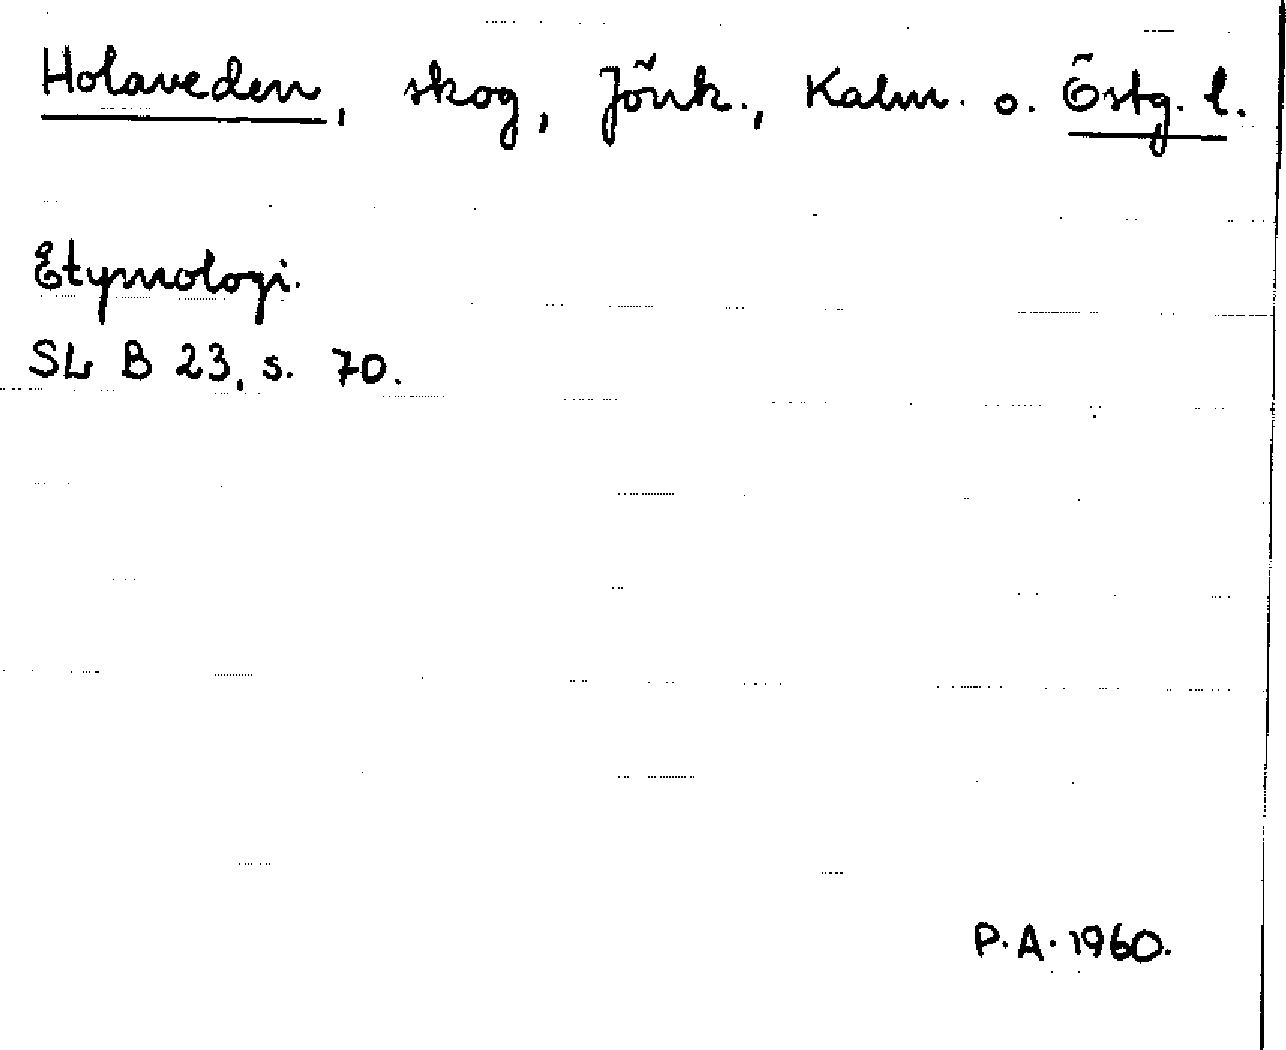 Holaveden, skog, Jönk., Kalm. o. Östg. l.
Etymologi.
SL B 23, s. 70.
P.A. 1960.